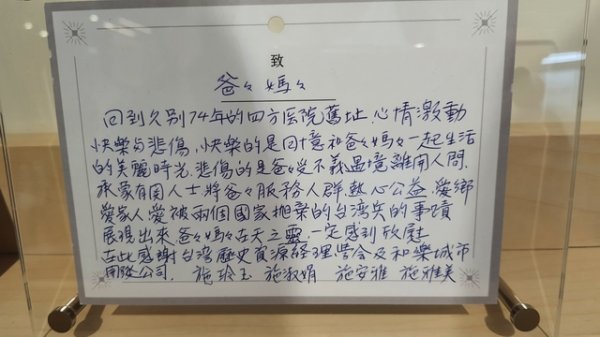 致
爸々媽々
回到久別74年的四方医院舊址,心情激動
快樂与悲傷,快樂的是回憶和爸々媽々一起生活
的美麗時光,悲傷的是爸々受不義盪境離開人間.
承蒙有関人士將爸々服務人群,熱心公益,愛鄉
愛家人愛被兩個國家拋棄的台湾兵的事蹟
展現出來,爸々媽々在天之靈,一定感到欣慰
在此感謝台湾歷史資源経理學会及和樂城市
開發公司. 施玲玉 施淑娟 施安雅 施雅美